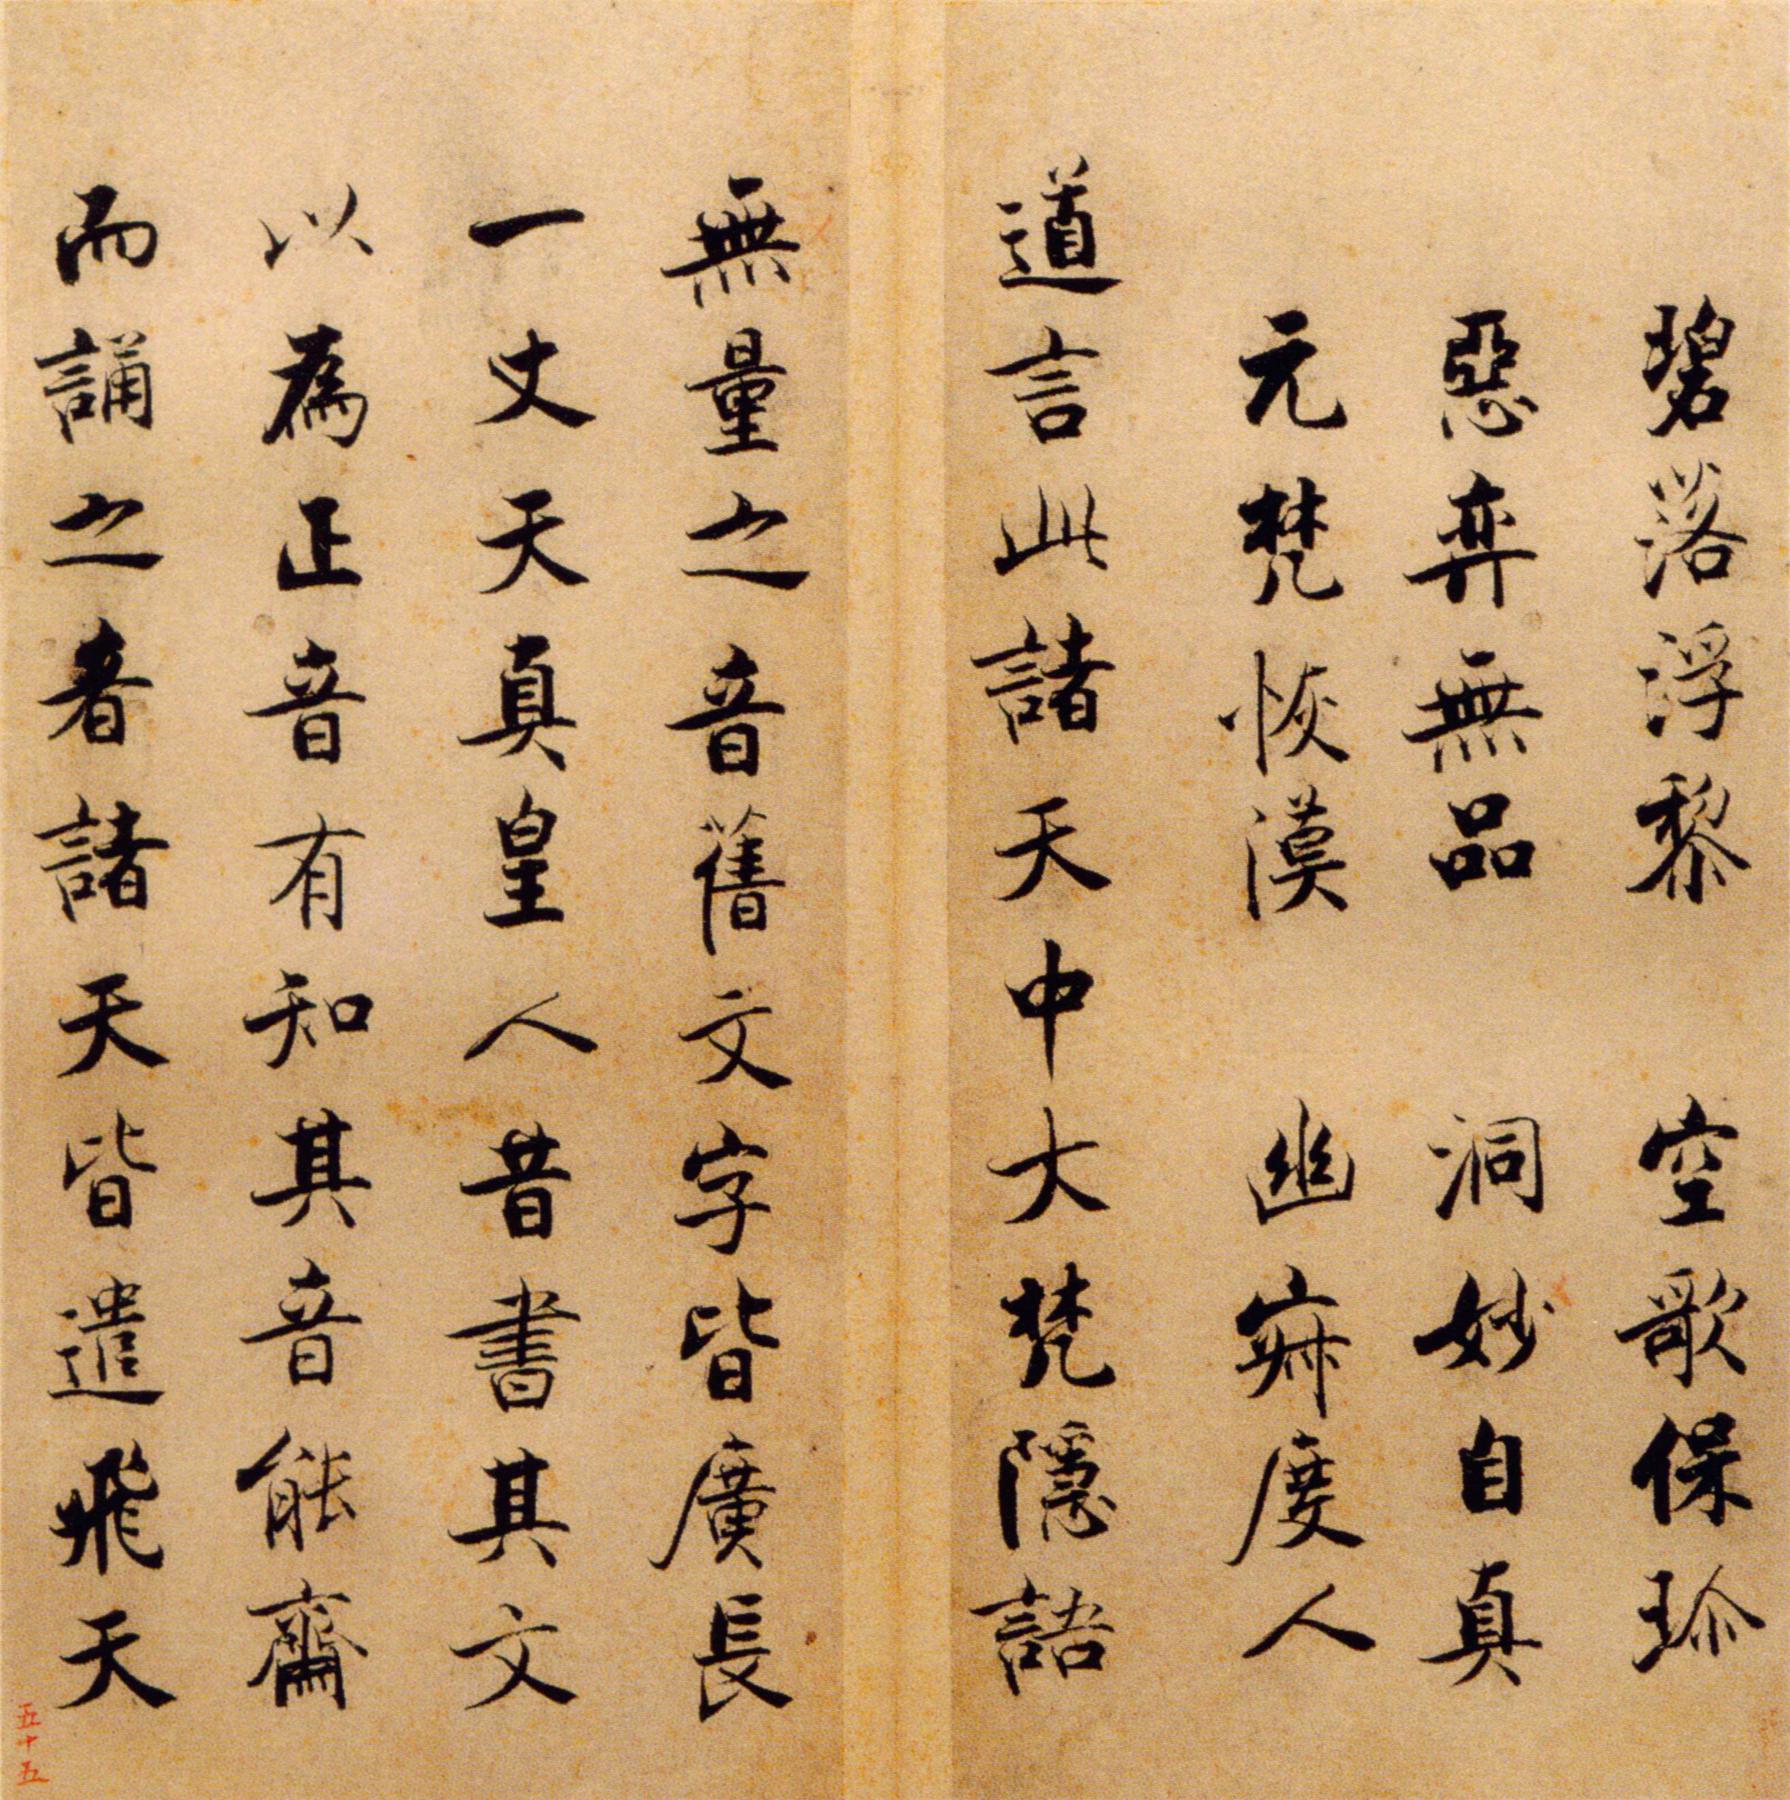 碧落浮黎　空歌保珍
惡弈無品　洞妙自真
元梵恢漠　幽寂度人
道言此諸天中大梵隱語
無量之音舊文字皆廣長
一丈天真皇人昔書其文
以為正音有知其音能齋
而誦之者諸天皆遣飛天
五十五